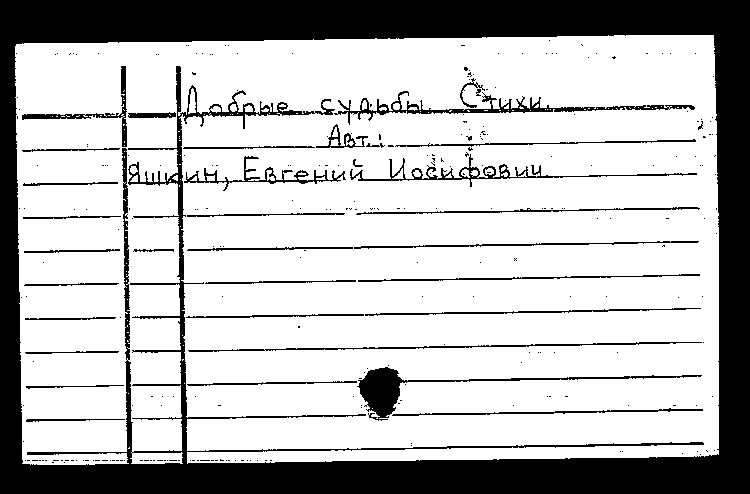 Добрые судьбы. Стихи.
Авт.:
Яшкин, Евгений Иосифович